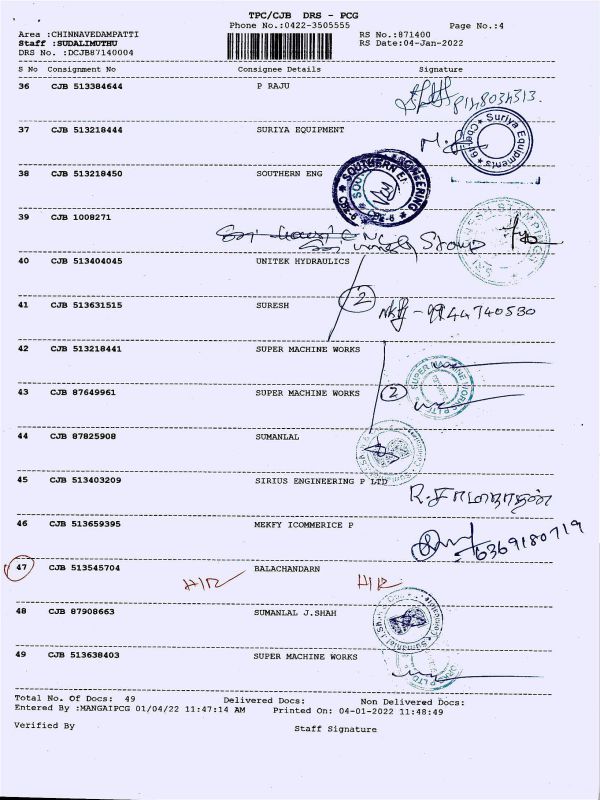 TPC/CJB DRS - PCG
Phone No.:0422-3505555 Page No.:4
Area :CHINNAVEDAMPATTI RS No.:871400
Staff :SUDALIMUTHU RS Date:04-Jan-2022
DRS No. :DCJB87140004
S No Consignment No Consignee Details Signature
36 CJB 513384644 P RAJU
37 CJB 513218444 SURIYA EQUIPMENT
Suriya Equipments
38 CJB 513218450 SOUTHERN ENG
SOUTHERN ENGINEERING CBE-6
39 CJB 1008271
40 CJB 513404045 UNITEK HYDRAULICS
2
41 CJB 513631515 SURESH 9944740530
42 CJB 513218441 SUPER MACHINE WORKS
43 CJB 87649961 SUPER MACHINE WORKS 2
44 CJB 87825908 SUMANLAL
45 CJB 513403209 SIRIUS ENGINEERING P LTD
46 CJB 513659395 MEKFY ICOMMERICE P
6369180719
47 CJB 513545704 BALACHANDARN
48 CJB 87908663 SUMANLAL J.SHAH
49 CJB 513638403 SUPER MACHINE WORKS
Total No. Of Docs: 49 Delivered Docs: Non Delivered Docs:
Entered By :MANGAIPCG 01/04/22 11:47:14 AM Printed On: 04-01-2022 11:48:49
Verified By Staff Signature